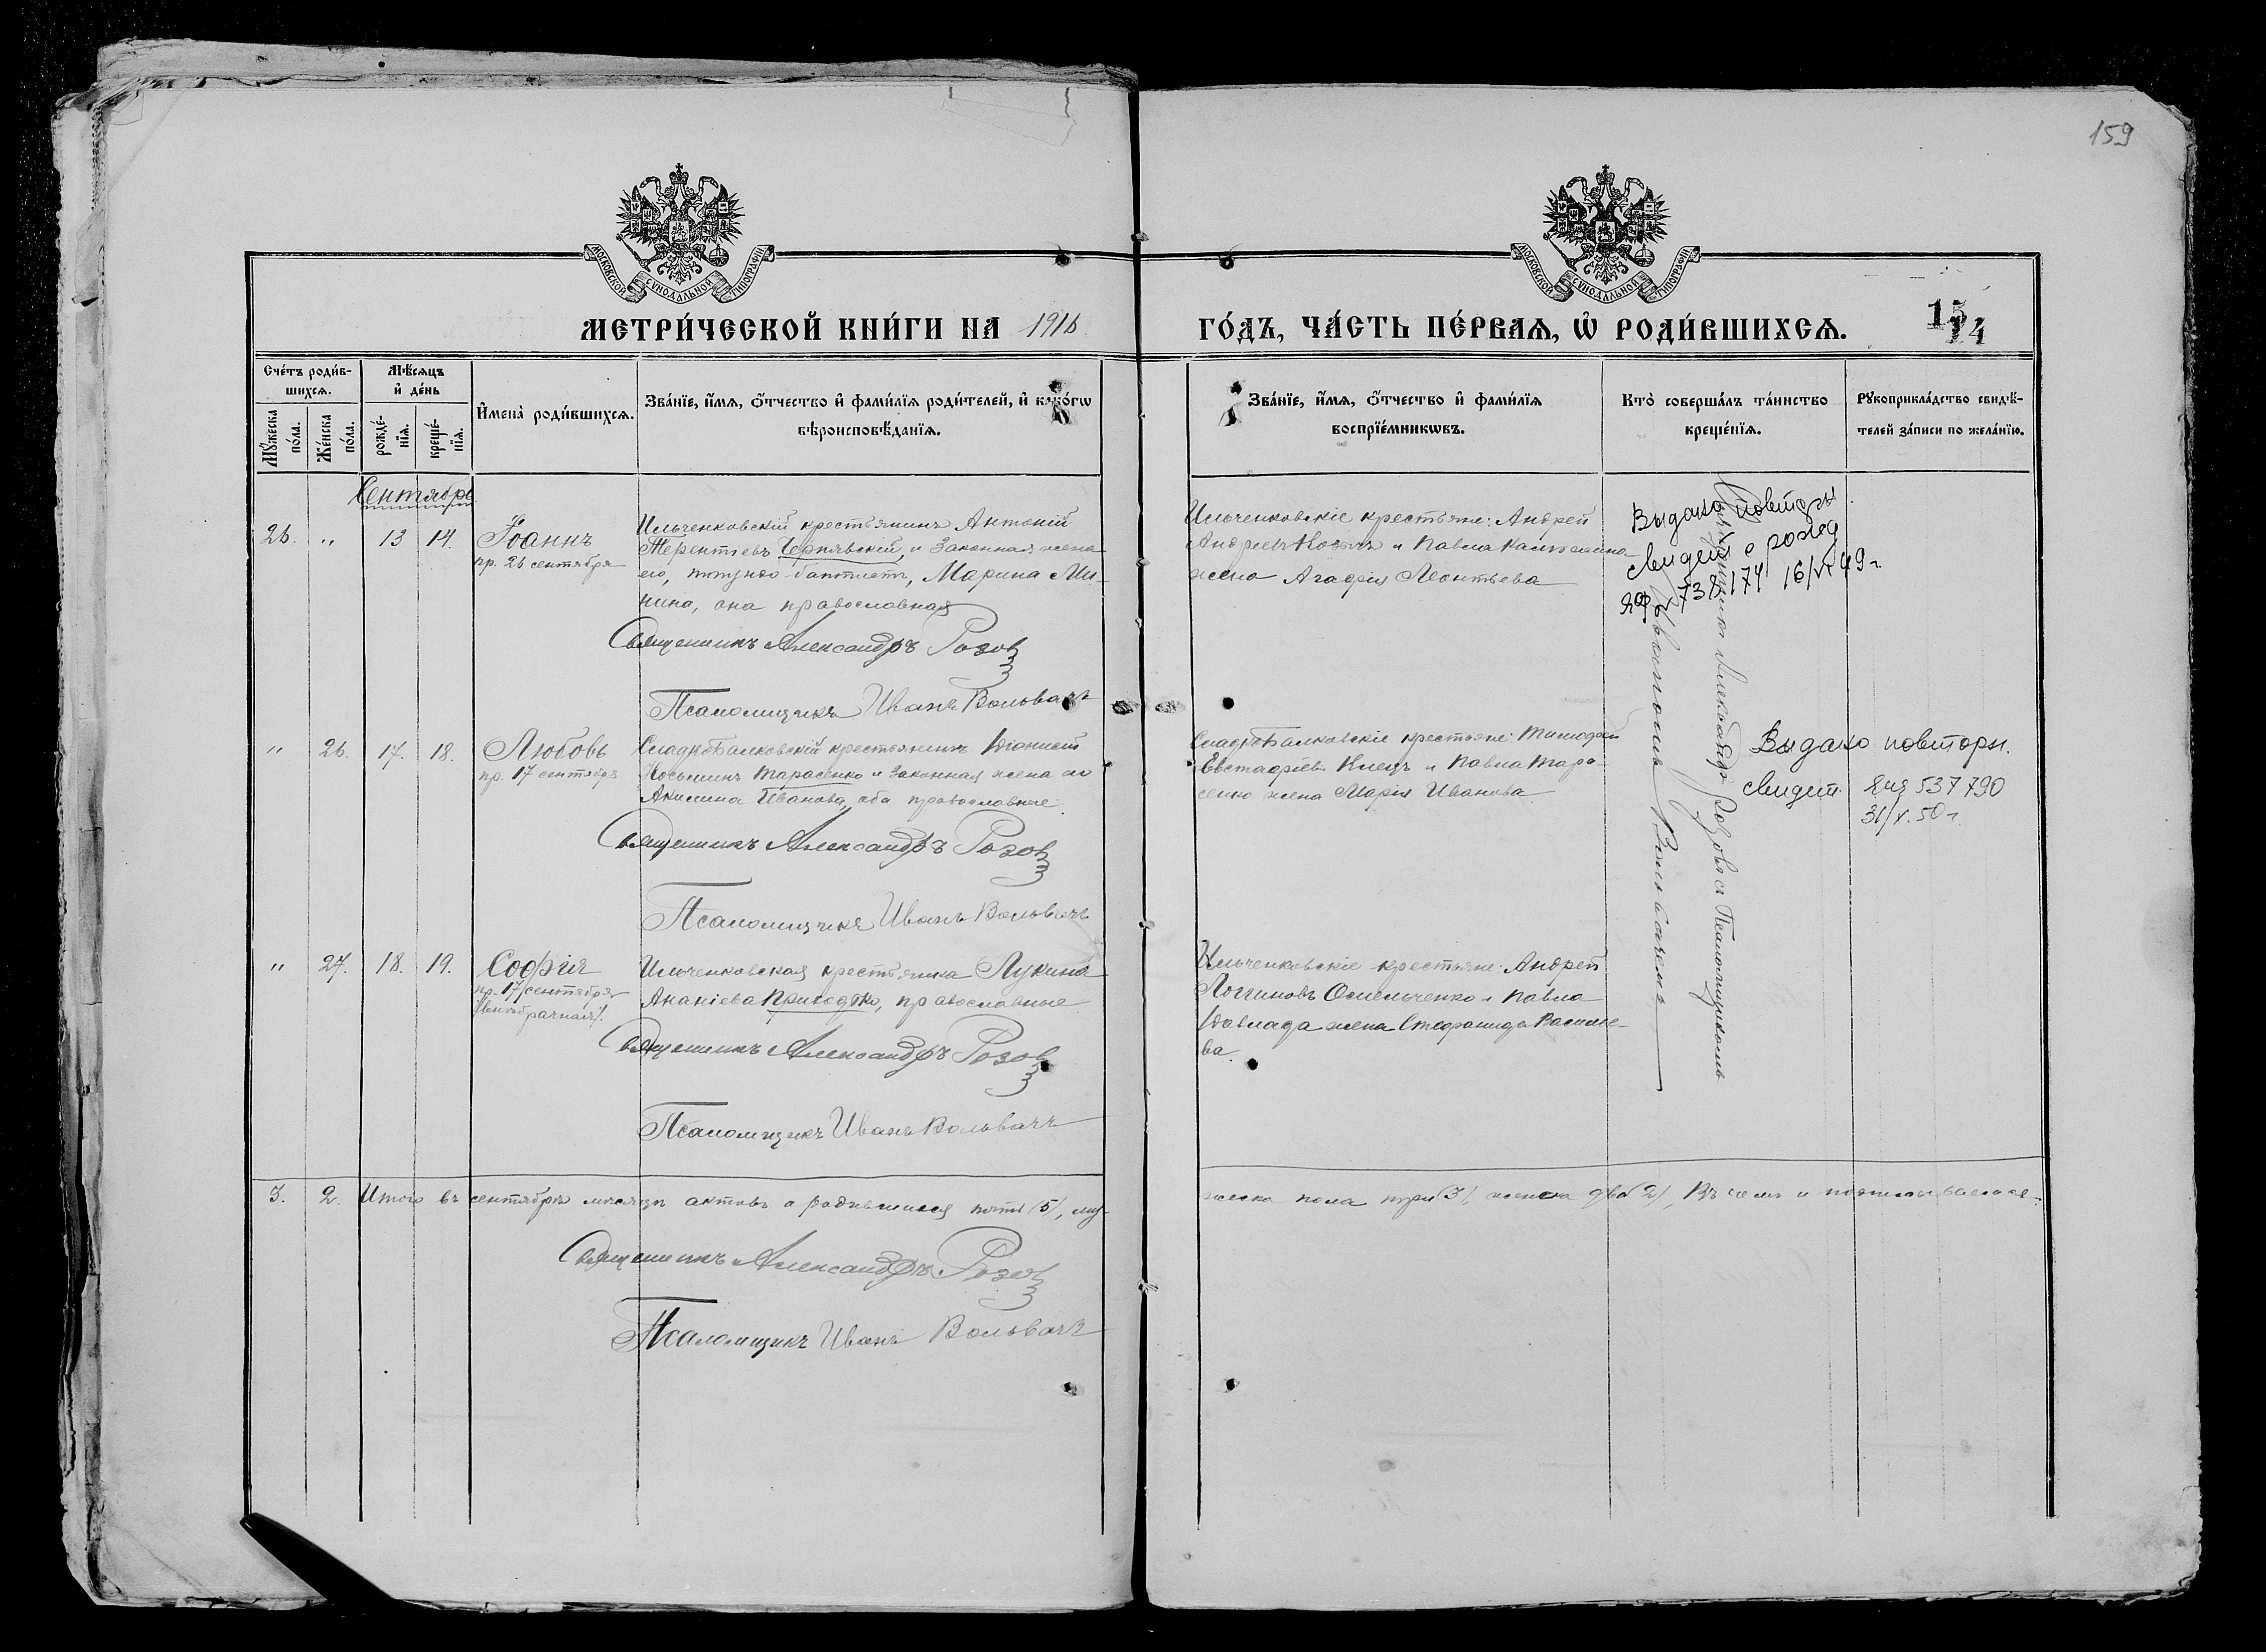 159
МОСКОВСКОЙ СУНОДАЛЬНОЙ ТИПОГРАФІИ
МОСКОВСКОЙ СУНОДАЛЬНОЙ ТИПОГРАФІИ
МЕТРИ́ЧЕСКОЙ КНИ́ГИ НА 1916
ГО́ДЪ, ЧА́СТЬ ПЕ́РВАѦ, Ѡ РОДИ́ВШИХСѦ.
Сче́тъ роди́в-
шихсѧ.
Мꙋ́жеска по́ла.
Же́нска по́ла.
Мѣ́сѧцъ
и҆ де́нь
рожде́-
нїѧ.
креще́-
нїѧ.
И҆мена̀ роди́вшихсѧ.
Зва́нїе, и҆́мѧ, ѻ҆́тчество и҆ фами́лїѧ роди́телей, и҆ како́гѡ
вѣроисповѣ́данїѧ.
Зва́нїе, и҆́мѧ, ѻ҆́тчество и҆ фами́лїѧ
воспрїе́мникѡвъ.
Кто̀ соверша́лъ та́инство
креще́нїѧ.
Рꙋкоприкла́дство свидѣ́-
телей за́писи по жела́нїю.
Сентябрь
26. " 13 14. Іоаннъ
пр. 26 сентября
Ильченковскій крестьянинъ Антоній
Терентіевъ Чернявскій, и законная жена
его, баптистъ, Марина Ми-
нина, она православная
Священникъ Александръ Розов
Псаломщикъ Иванъ Вольвачъ
Ильченковскіе крестьяне: Андрей
Андреевъ и Павла
жена Агафія Леонтьева
Выдано повторн
свидет о рожд
738174 16/VI 49 г
" 26. 17. 18. Любовь
пр. 17 сентября
крестьянинъ Діонисій
Косьминъ Тарасенко и законная жена его
Акилина Иванова, оба православные
Священникъ Александръ Розов
Псаломщикъ Иванъ Вольвачъ
крестьяне: Тимофей
Евстафіевъ Клецъ и Павла Тара-
сенко жена Марія Иванова
Выдано повторн.
свидет. 537790
31/X. 50 г
" 27. 18. 19. Софія
пр. 17 сентября
(внѣбрачная).
Ильченковская крестьянка Лукина
Ананіева Приходько, православные
Священникъ Александръ Розов
Псаломщикъ Иванъ Вольвачъ
Ильченковскіе крестьяне: Андрей
Логиновъ Омельченко и Павла
жена Стефанида Василіе-
ва.
Священникъ Александръ Розовъ и Псаломщикомъ
Іваномъ Вольвачемъ
3. 2. Итого въ сентябрѣ мѣсяцѣ актовъ о родившихся пять (5), му-
жеска пола три (3), женска два (2), Въ чемъ и подписываемся:
Священникъ Александръ Розов
Псаломщикъ Иванъ Вольвачъ